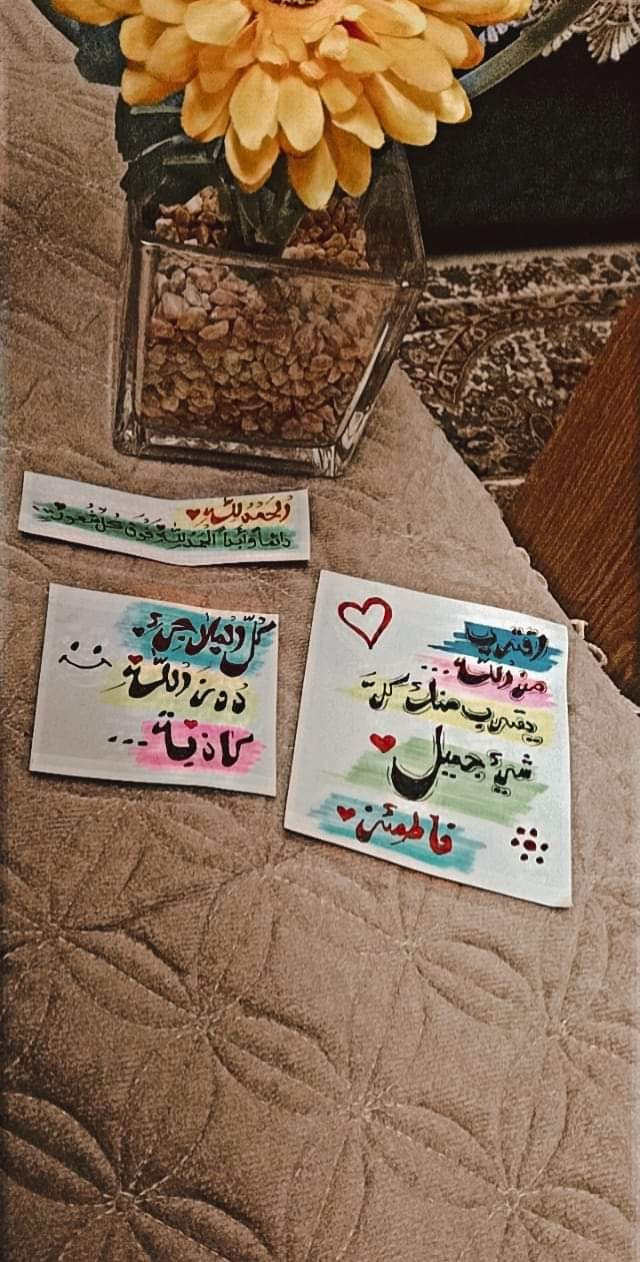 الحمدُ للّه
دائما وأبداً الحمدللّه فوق كل شعور
كلّ الملاجئ
دون اللّه
كاذبة...
اقترب
من اللّه...
يقترب منك كلّ
شيء جميل
فاطمئن